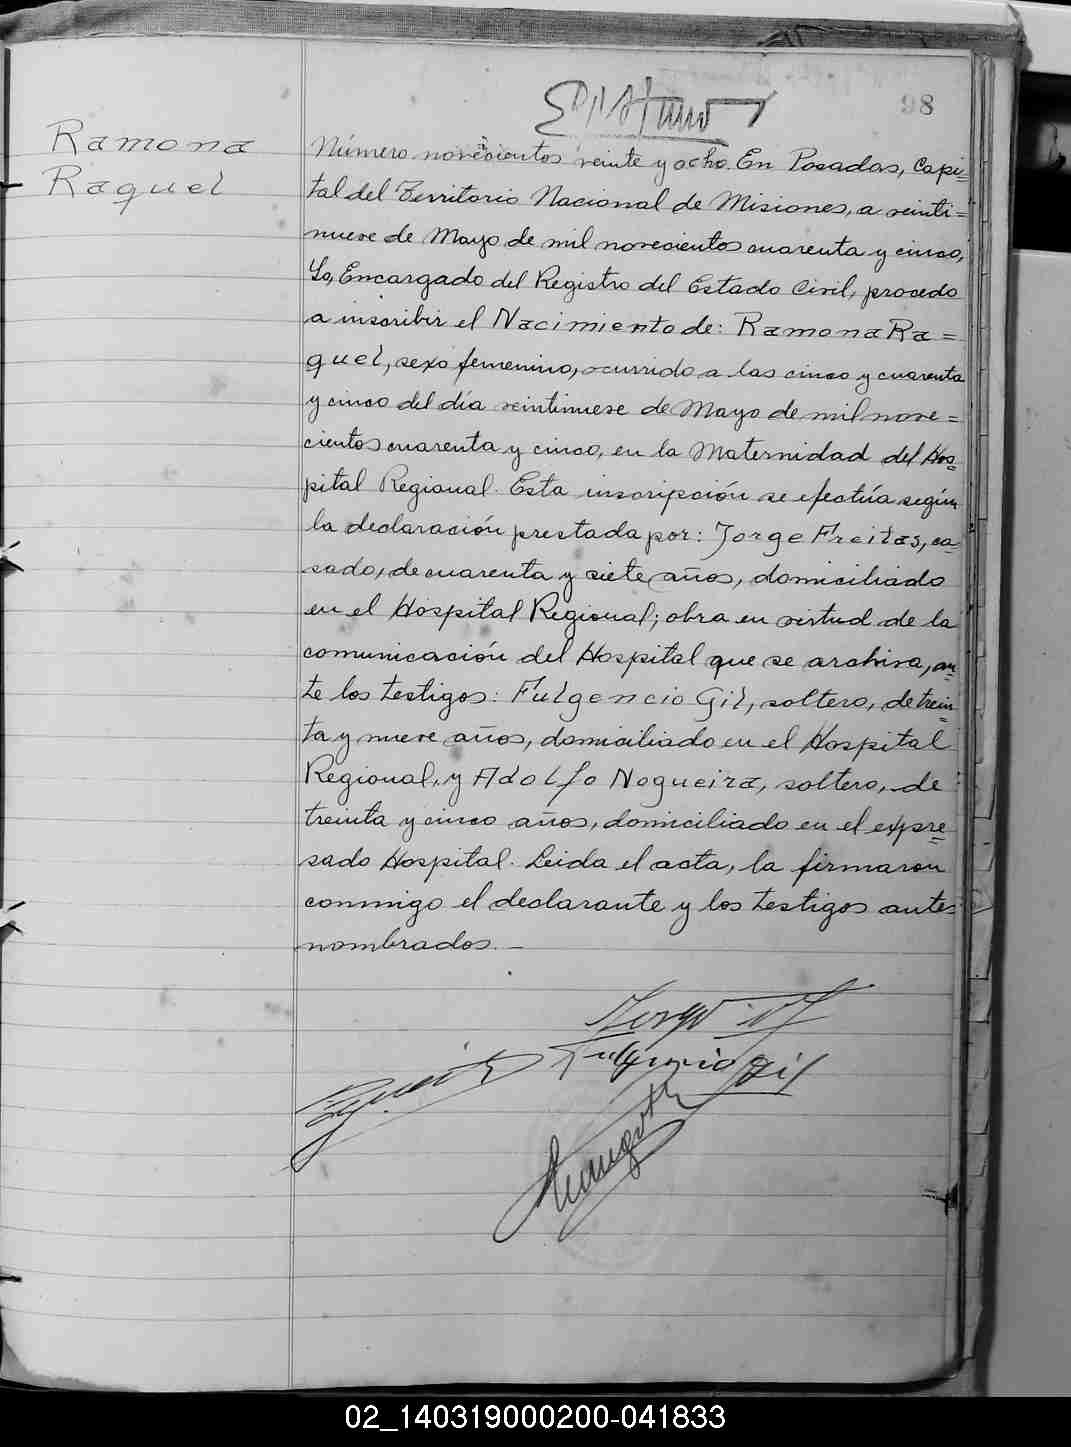 98
Ramona
Raquel
Número novecientos veinte y ocho. En Posadas, Capi=
tal del Territorio Nacional de Misiones, a veinti=
nueve de Mayo de mil novecientos cuarenta y cinco,
Yo, Encargado del Registro del Estado Civil, procedo
a inscribir el Nacimiento de: Ramona Ra=
quel, sexo femenino, ocurrido a las cinco y cuarenta
y cinco del día veintinueve de Mayo de mil nove=
cientos cuarenta y cinco, en la Maternidad del Hos=
pital Regional. Esta inscripción se efectúa según
la declaración prestada por: Jorge Freitas, ca=
sado, de cuarenta y siete años, domiciliado
en el Hospital Regional; obra en virtud de la
comunicación del Hospital que se archiva, an=
te los testigos: Fulgencio Gil, soltero, de trein=
ta y nueve años, domiciliado en el Hospital
Regional, y Adolfo Nogueira, soltero, de
treinta y cinco años, domiciliado en el expre=
sado Hospital. Leida el acta, la firmaron
conmigo el declarante y los testigos antes
nombrados. —
Jorge
Fulgencio Gil
02_140319000200-041833